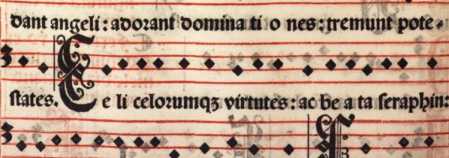 dant angeli : adorant domina ti o nes : tremunt pote-
states. C e li celorumqꝫ virtutes : ac be a ta seraphin: